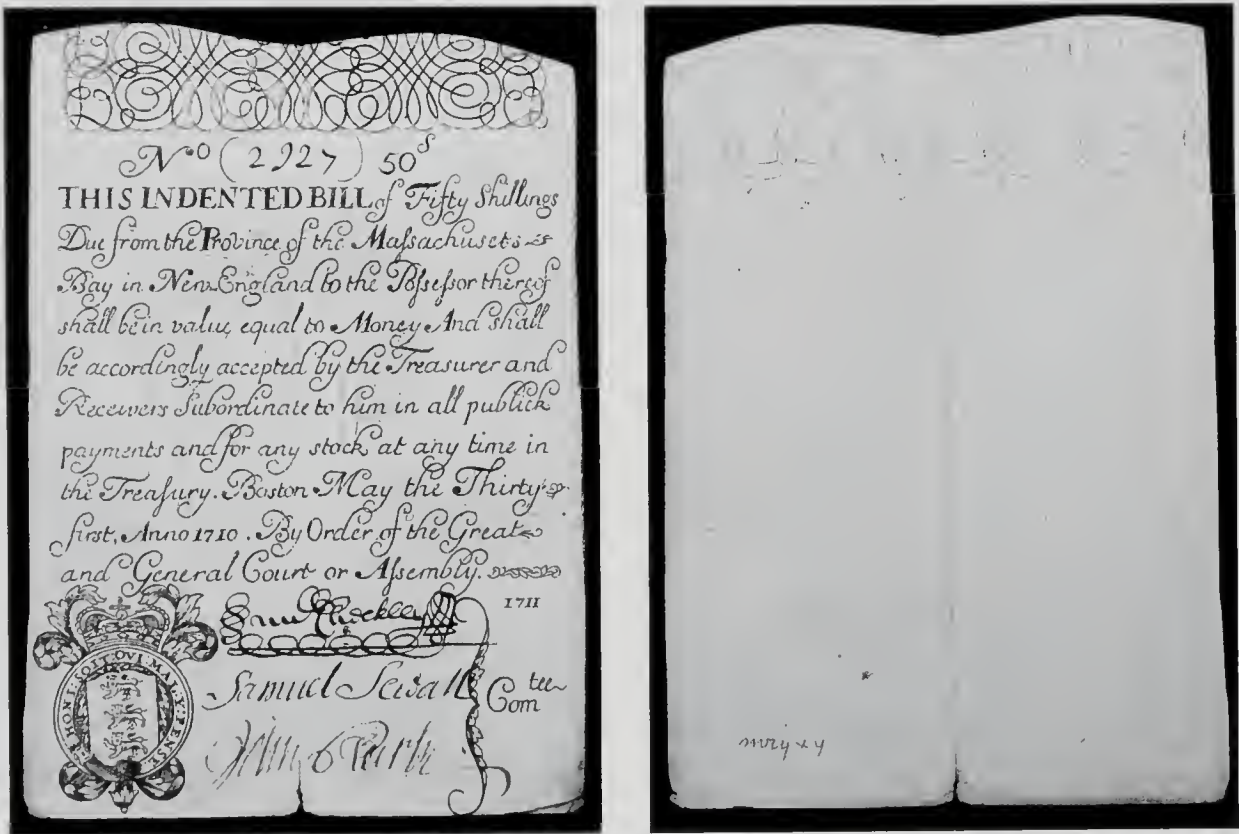 No (2927) 50s
THIS INDENTED BILL of Fifty Shillings
Due from the Province of the Maſsachusets
Bay in New-England to the Poſseſsor thereof
shall be in value equal to Money And shall
be accordingly accepted by the Treasurer and
Receivers Subordinate to him in all publick
payments and for any stock at any time in
the Treaſury. Boston May the Thirty
first, Anno 1710. By Order of the Great
and General Court or Aſsembly.
1711
Sam Checkley
Samuel Sewall
Comtee
HONI·SOIT·QVI·MAL·Y·PENSE